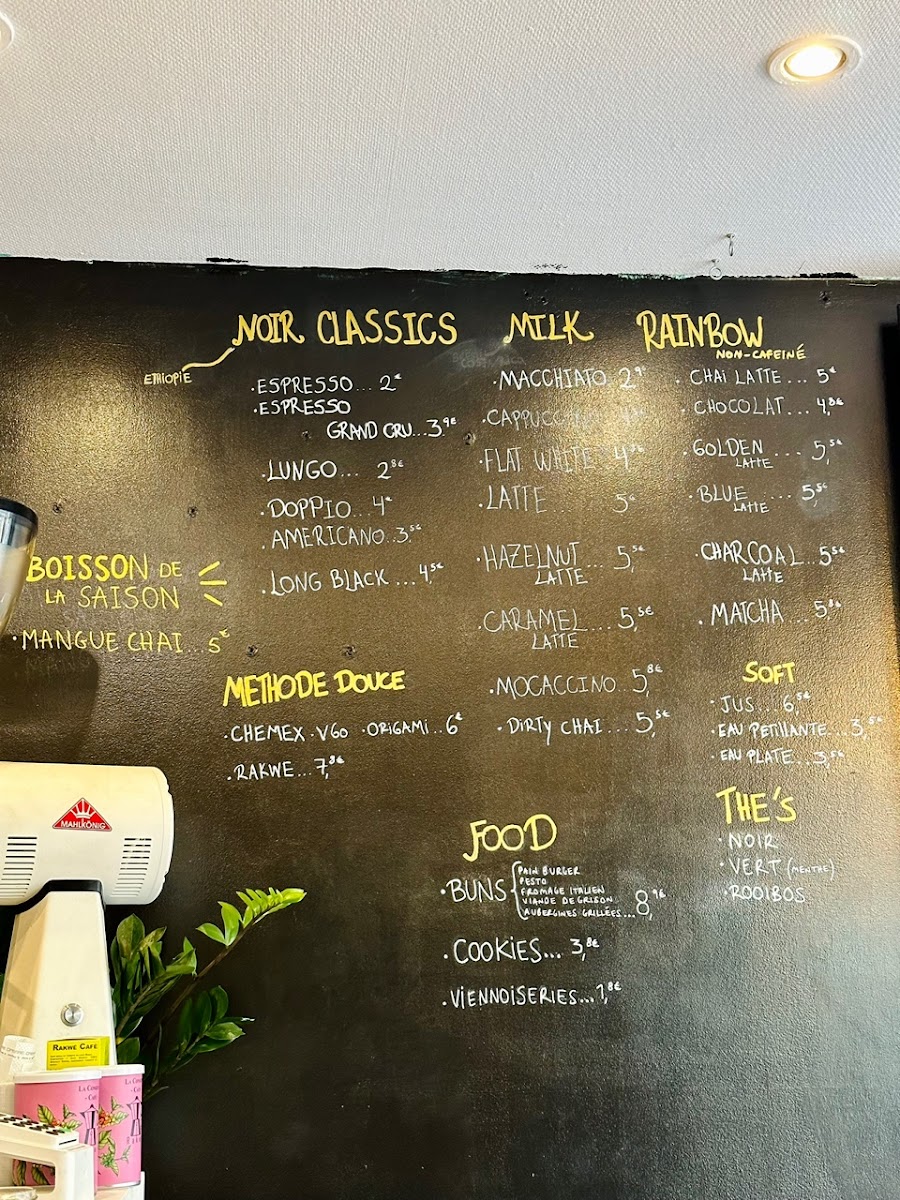 NOIR CLASSICS
ETHIOPIE
.ESPRESSO... 2€
.ESPRESSO
GRAND CRU...3.9€
.LUNGO... 2,8€
.DOPPIO...4€
.AMERICANO..3,5€
.LONG BLACK ...4,5€
BOISSON DE
LA SAISON
.MANGUE CHAI..5€
METHODE DOUCE
.CHEMEX .V60 .ORIGAMI..6€
.RAKWE...7,8€
MILK
.MACCHIATO 2,9€
.CAPPUCCINO
.FLAT WHITE
.LATTE... 5€
.HAZELNUT... 5,5€
LATTE
.CARAMEL... 5,5€
LATTE
.MOCACCINO..5,8€
.DIRTY CHAI...5,5€
RAINBOW
NON-CAFEINÉ
.CHAI LATTE... 5€
.CHOCOLAT...4,8€
.GOLDEN .... 5,5€
LATTE
.BLUE .... 5,5€
LATTE
.CHARCOAL..5,5€
LATTE
.MATCHA ...5,8€
SOFT
.JUS....6,5€
.EAU PETILLANTE...3,5€
.EAU PLATE...3,5€
THE'S
.NOIR
.VERT (MENTHE)
.ROOIBOS
FOOD
.BUNS
PAIN BURGER
PESTO
FROMAGE ITALIEN
VIANDE DE GRISON
AUBERGINES GRILLÉES...8,9€
.COOKIES... 3,8€
.VIENNOISERIES...1,8€
MAHLKÖNIG
RAKWE CAFE